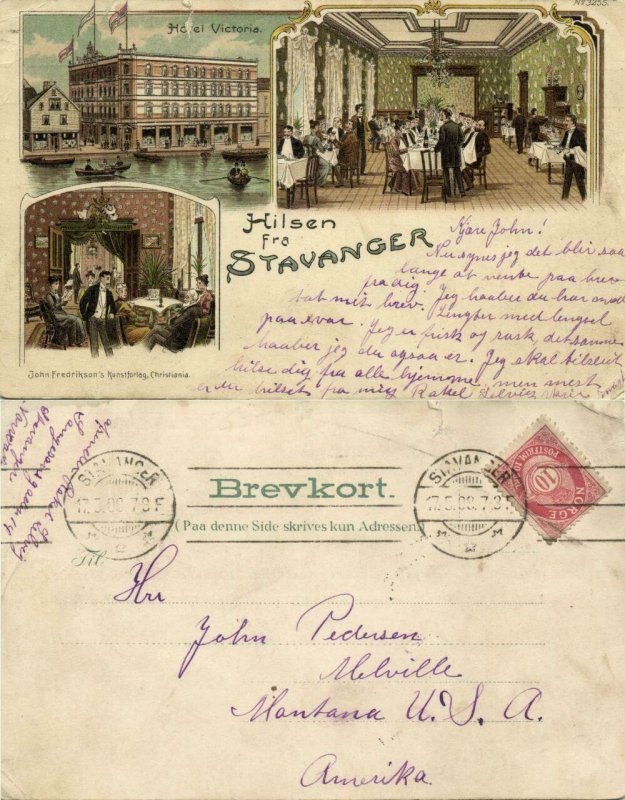 No 3255.
Hotel Victoria.
Hilsen
fra
STAVANGER
Kjære John!
Nu synes jeg det blir saa
lenge at vente paa brev
fra dig.
mit brev. Jeg haaber du har
paa svar. Lengter med lengsel
Jeg er frisk og rask, det samme
haaber jeg du ogsaa er. Jeg skal
hilse dig fra alle hjemme, men mest
er du hilset fra mig Rakel
John Fredrikson's Kunstforlag, Christiania.
STAVANGER
17.5.08.7.8F
Brevkort.
(Paa denne Side skrives kun Adressen)
STAVANGER
17.5.08.7.8F
POSTFRIM.
10
NORGE
Rakel
Stavanger
Til
Hr
John Pedersen
Melville
Montana U. S. A.
Amerika.